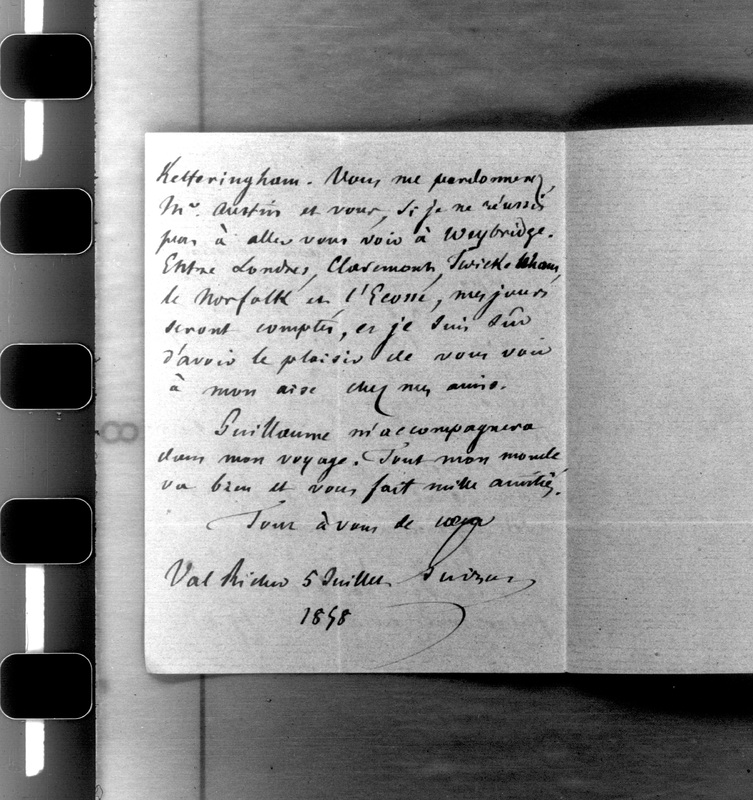 Ketteringham. Vous me pardonnerez,
Mr. Austin et vous, si je ne réussis
pas à aller vous voir à Weybridge.
Entre Londres, Claremont, Twickenham,
le Norfolk et l'Ecosse, mes jours
seront comptés, et je suis sûr
d'avoir le plaisir de vous voir
à mon aise chez mes amis.
Guillaume m'accompagnera
dans mon voyage. Tout mon monde
va bien et vous fait mille amitiés.
Tout à vous de cœur
Val Richer 5 Juillet Guizot
1858
8